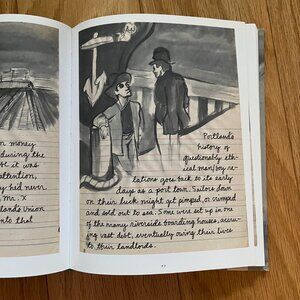 money
during the
it was
attention,
had never
Mr. X
land's Union
that
Portland's
history of
questionably eth-
ical man/boy re-
lations goes back to its early
days as a port town. Sailors down
on their luck might get pimped, or
and sold out to sea. Some were set up in one
of the many riverside boarding houses, accru-
ing vast debt, eventually owing their lives
to their landlords.